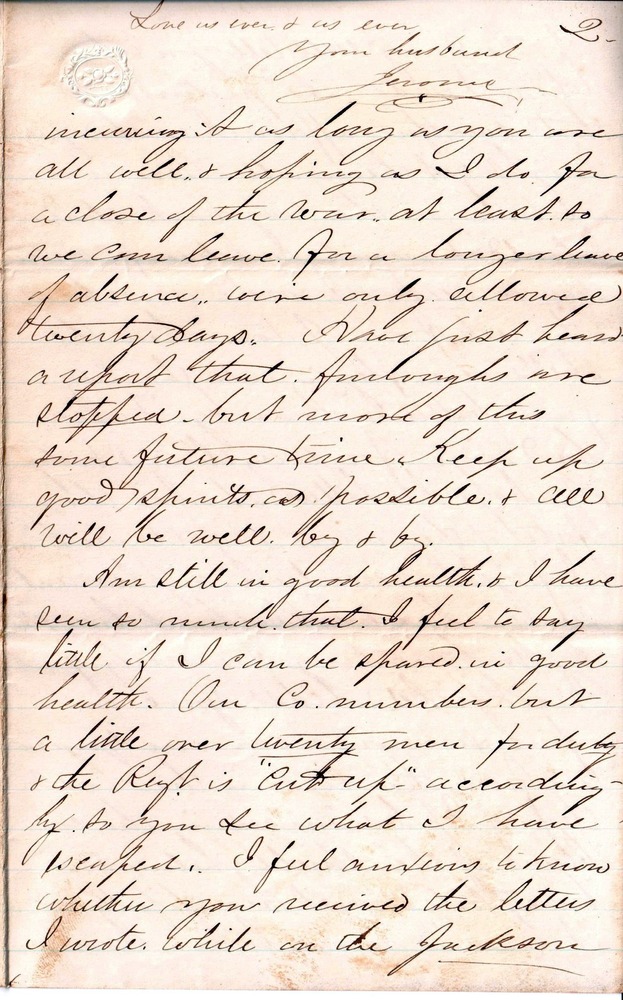 Love as ever & as ever
2-
Your husband
Jerome
incuring it as long as you are
all well, & hoping as I do for
a close of the war, at least so
we can leave for a longer leave
of absence, we're only allowed
twenty days. Have just heard
a report that furloughs are
stopped - but more of this
some future time. Keep up
good spirits as possible & all
will be well by & by.
Am still in good health, & I have
seen so much that I feel to say
little if I can be spared in good
health. Our Co. numbers but
a little over twenty men for duty
& the Regt is "cut up" according-
ly. So you see what I have
escaped. I feel anxious to know
whether you received the letters
I wrote while on the Jackson